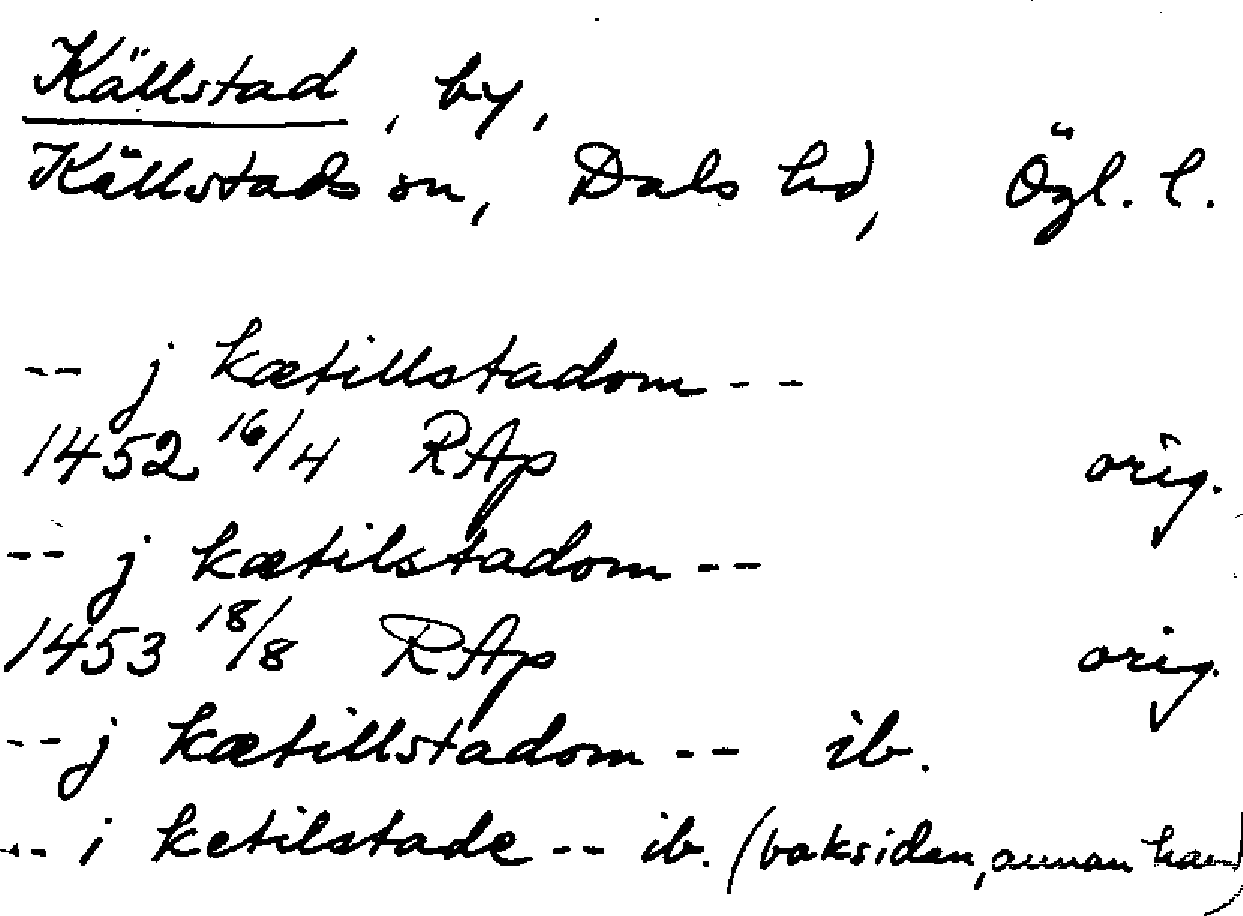 Källstad, by,
Källstads sn, Dals hd, Ögl. l.
-- j kætillstadom --
1452 16/4 RAp orig.
-- j kætilstadom --
1453 18/8 RAp orig.
-- j kætillstadom -- ib.
-- i ketilstade -- ib. (baksidan, annan hand)